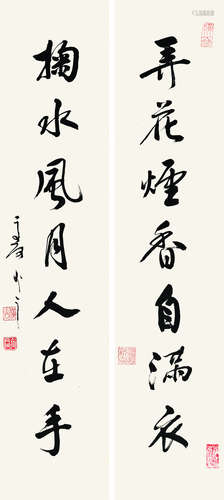 弄花煙香自滿衣
掬水風月人在手